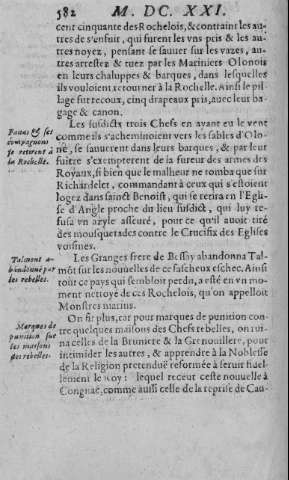 582 M. DC. XXI.
cent cinquante des Rochelois, & contraint les au-
tres de s'enfuir, qui furent les vns pris & les au-
tres noyez, pensant se sauuer sur les vazes, au-
tres arrestez & tuez par les Mariniers Olonois
en leurs chaluppes & barques, dans lesquelles
ils vouloient retourner à la Rochelle. Ainsi le pil-
lage fut recoux, cinq drapeaux pris, auec leur ba-
gage & canon.
Les susdicts trois Chefs en ayant eu le vent
comme ils s'acheminoient vers les sables d'Olo-
ne, se sauuerent dans leurs barques, & par leur
fuitte s'exempterent de la fureur des armes des
Royaux, si bien que le malheur ne tomba que sur
Richardelet, commandant à ceux qui s'estoient
logez dans sainct Benoist, qui se retira en l'Egli-
se d'Angle proche du lieu susdict, qui luy re-
fusa vn azyle asseuré, pour ce qu'il auoit tiré
des mousquetades contre le Crucifix des Eglises
voisines.
& ses
compagnons
se retirent à
la Rochelle.
Les Granges frere de Bessay abandonna Tal-
mõt sur les nouuelles de ce fascheux eschec. Ainsi
tout ce pays qui sembloit perdu, a esté en vn mo-
ment nettoyé de ces Rochelois, qu'on appelloit
Monstres marins.
Talmont a-
bandonné par
les rebelles.
On fit plus, car pour marques de punition con-
tre quelques maisons des Chefs rebelles, on rui-
na celles de la Bruniere & la Grenouillere, pour
intimider les autres, & apprendre à la Noblesse
de la Religion pretenduë reformée à seruir fidel-
lement le Roy: lequel receut ceste nouuelle à
Congnac, comme aussi celle de la reprise de Cau-
Marques de
punition sur
les maisons
des rebelles.